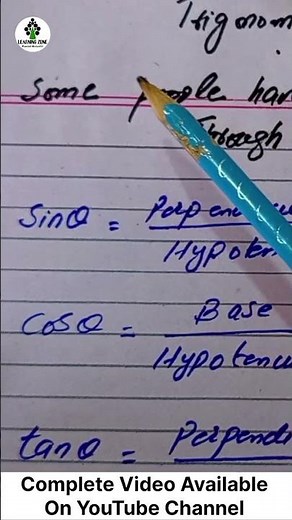 LEARNING ZONE
Trigonom
Some people hav
Through
Sinθ = Perpendicu
Hypoten
Cosθ = Base
Hypotenu
tanθ = Perpendi
Complete Video Available
On YouTube Channel